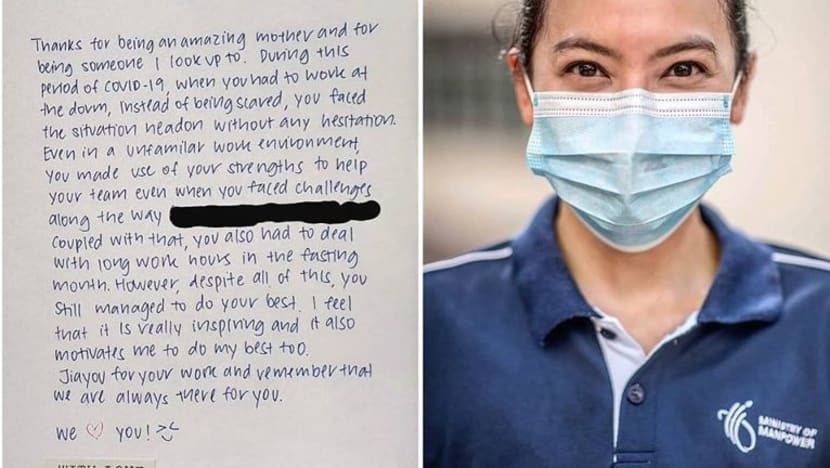 Thanks for being an amazing mother and for
being someone I look up to. During this
period of COVID-19, when you had to work at
the dorm, instead of being scared, you faced
the situation headon without any hesitation.
Even in a unfamilar work environment,
you made use of your strengths to help
your team even when you faced challenges
along the way
coupled with that, you also had to deal
with long work hours in the fasting
month. However, despite all of this, you
still managed to do your best. I feel
that it is really inspiring and it also
motivates me to do my best too.
Jiayou for your work and remember that
we are always there for you.
We ♡ you!
MINISTRY OF
MANPOWER